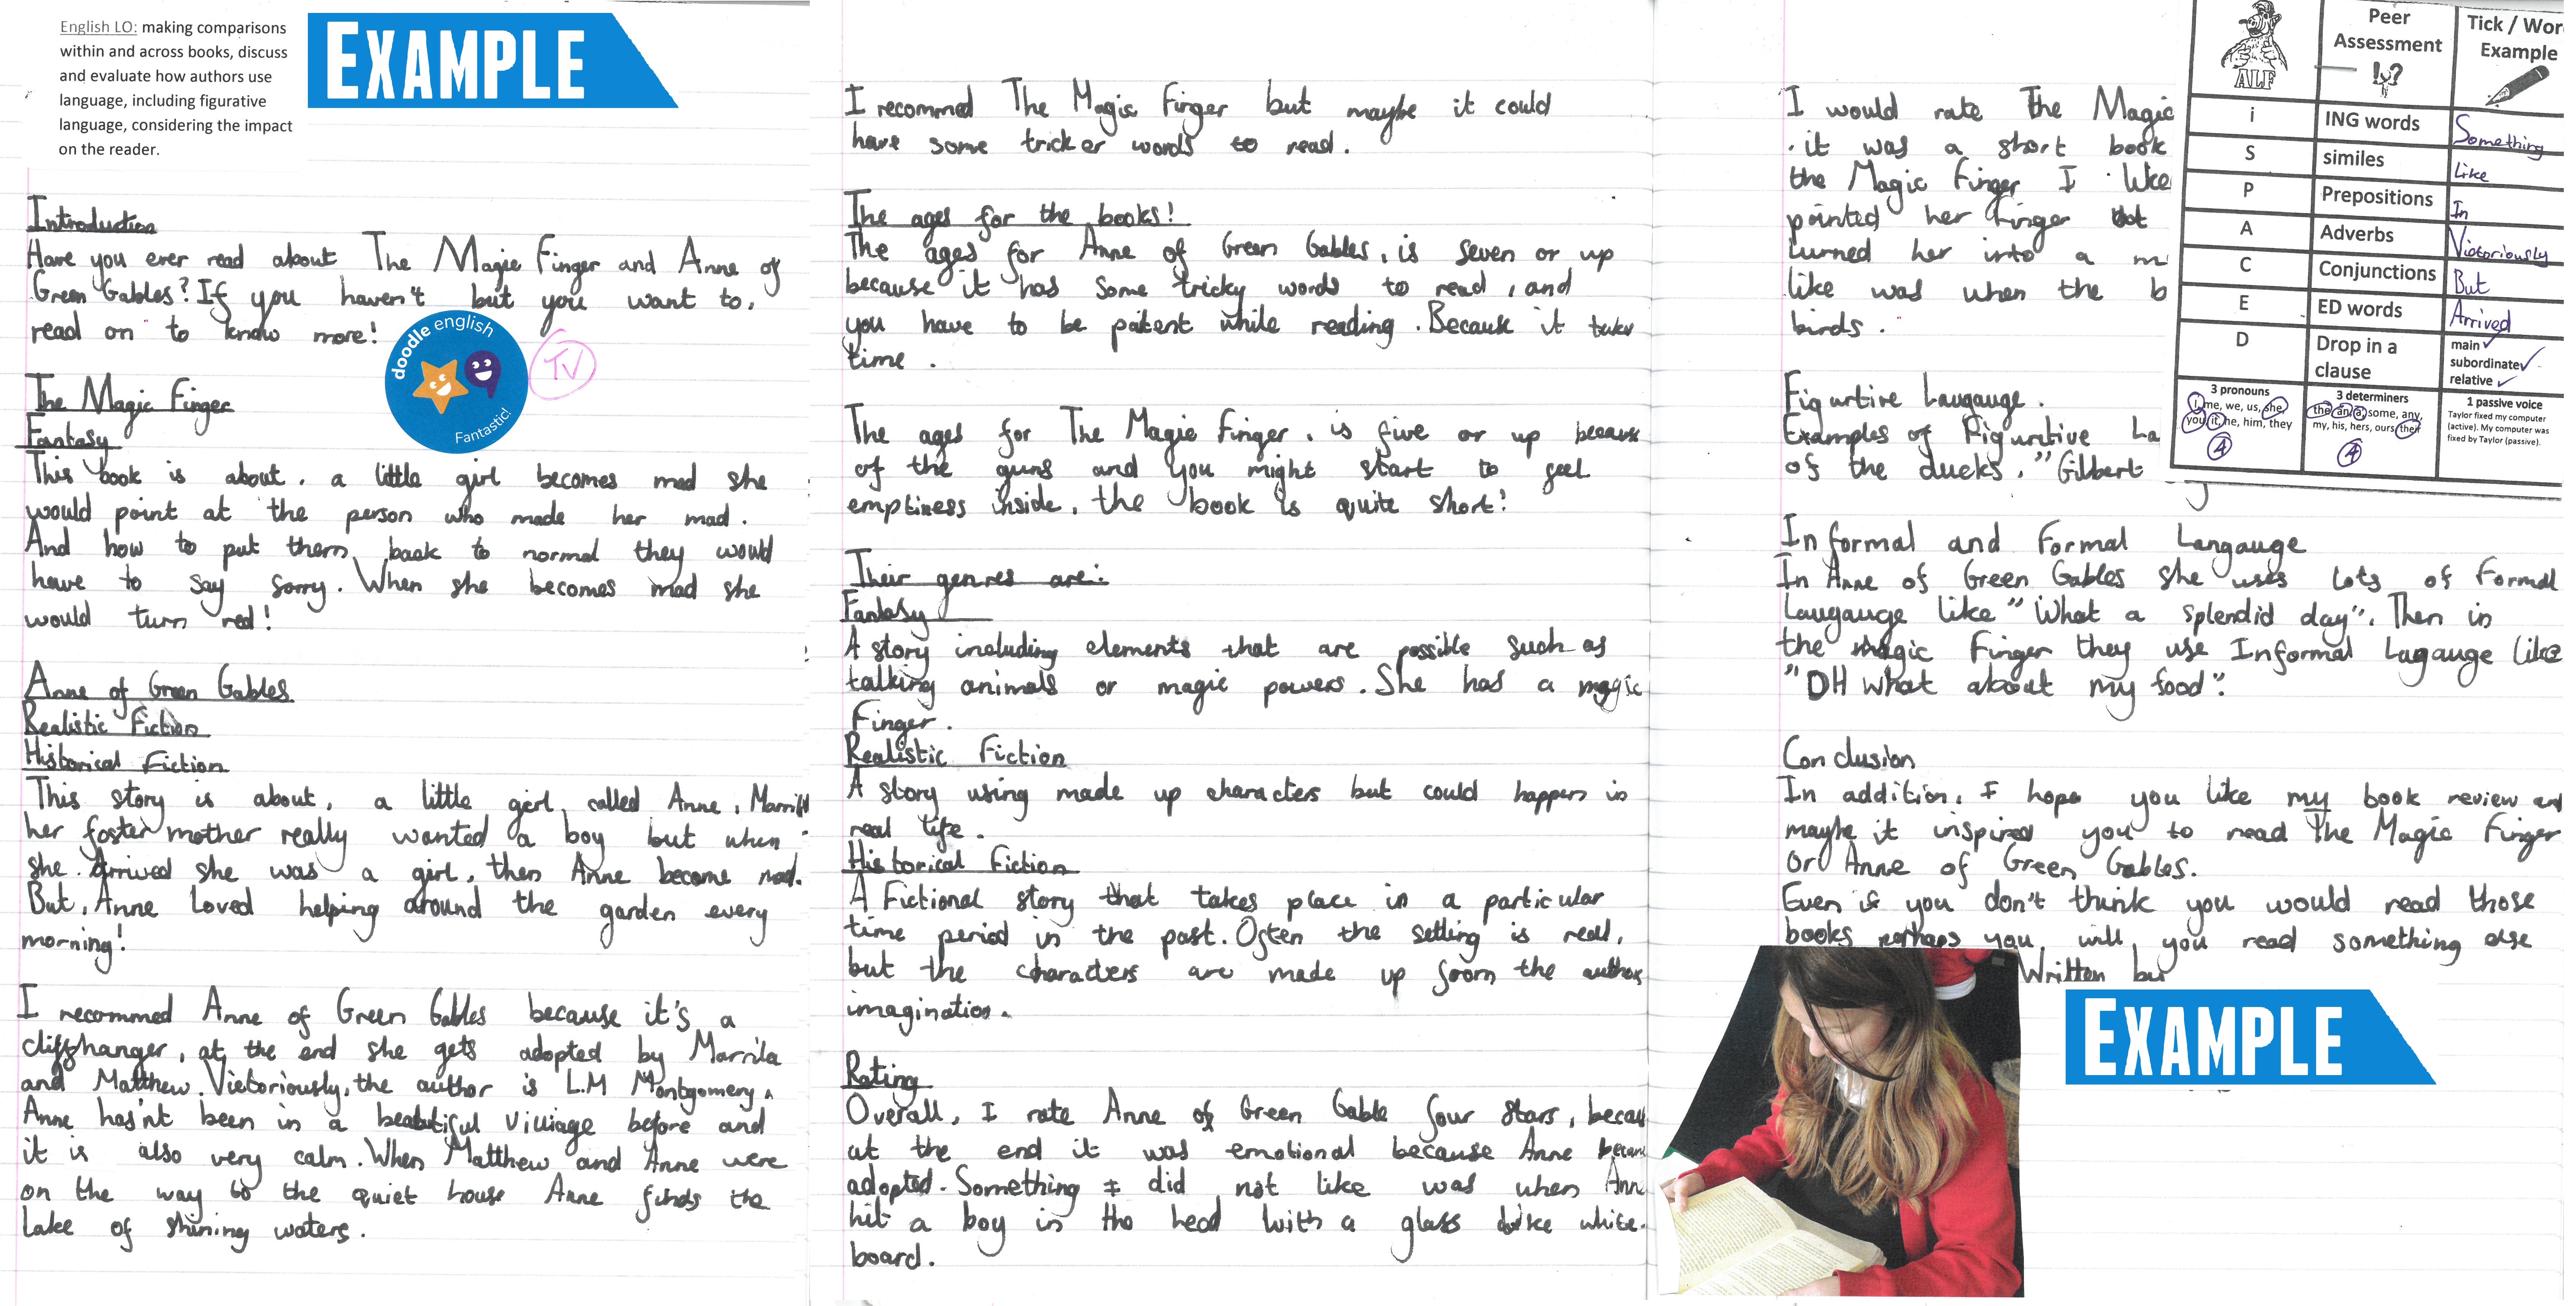 English LO: making comparisons
within and across books, discuss
and evaluate how authors use
language, including figurative
language, considering the impact
on the reader.
EXAMPLE
Introduction
Have you ever read about The Magic Finger and Anne of
Green Gables? If you haven't but you want to,
read on to know more!
doodle english
Fantastic!
TV
The Magic Finger
Fantasy
This book is about, a little girl becomes mad she
would point at the person who made her mad.
And how to put them back to normal they would
have to say sorry. When she becomes mad she
would turn red!
Anne of Green Gables
Realistic Fiction
Historical Fiction
This story is about, a little girl, called Anne,
her foster mother really wanted a boy but when
she Arrived she was a girl, then Anne become mad.
But, Anne Loved helping around the garden every
morning!
I recommed Anne of Green Gables because it's a
cliffhanger, at the end she gets adopted by Marrila
and Matthew. Victoriously, the author is L.M Montgomery,
Anne has'nt been in a beautiful villiage before and
it is also very calm. When Matthew and Anne were
on the way to the quiet house Anne finds the
Lake of shining waters.
I recommed The Magic Finger but maybe it could
have some tricker words to read.
The ages for the books!
The ages for Anne of Green Gables, is seven or up
because it has some tricky words to read, and
you have to be patient while reading. Because it takes
time.
The ages for The Magic Finger, is five or up because
of the guns and you might start to feel
emptiness inside, the book is quite short!
Their genres are:
Fantasy
A story including elements that are possible such as
talking animals or magic powers. She has a magic
Finger.
Realistic Fiction
A story using made up characters but could happen in
real life.
Historical Fiction
A Fictional story that takes place in a particular
time period in the past. Often the setting is real,
but the characters are made up from the authors
imagination.
Rating
Overall, I rate Anne of Green Gable four stars, becau
at the end it was emotional because Anne becam
adopted. Something I did not like was when Ann
hit a boy in the head with a glass white-
board.
I would rate The Magic
it was a short book
the Magic Finger I like
pointed her finger
turned her into a m
like was when the b
birds.
Figurtive Laugauge.
Examples of Figurtive La
of the ducks." Gilbert
Informal and Formal Langauge
In Anne of Green Gables she uses lots of Formal
Laugauge like "What a splendid day". Then in
the magic Finger they use Informal Lagauge like
"OH what about my food".
Conclusion
In addition, I hope you like my book review and
maybe it inspired you to read The Magic Finger
Or Anne of Green Gables.
Even if you don't think you would read those
books perhaps you, will, you read something else
Written by
ALF
Peer Assessment
!?
Tick / Wor
Example
i ING words Something
S similes Like
P Prepositions In
A Adverbs Victoriously
C Conjunctions But
E ED words Arrived
D Drop in a clause main subordinate relative
3 pronouns
I, me, we, us, she,
you, it, he, him, they
4
3 determiners
the, an, a, some, any,
my, his, hers, ours, their
4
1 passive voice
Taylor fixed my computer
(active). My computer was
fixed by Taylor (passive).
EXAMPLE